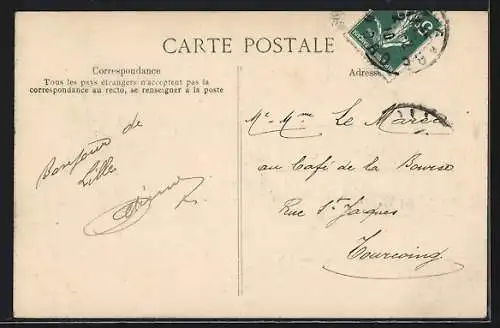 CARTE POSTALE
Correspondance
Tous les pays étrangers n'acceptent pas la
correspondance au recto, se renseigner à la poste
Adresse
Bonjour de
Lille
Mr. Mme Le
au Café de la Bourse
Rue St Jaques
Tourcoing